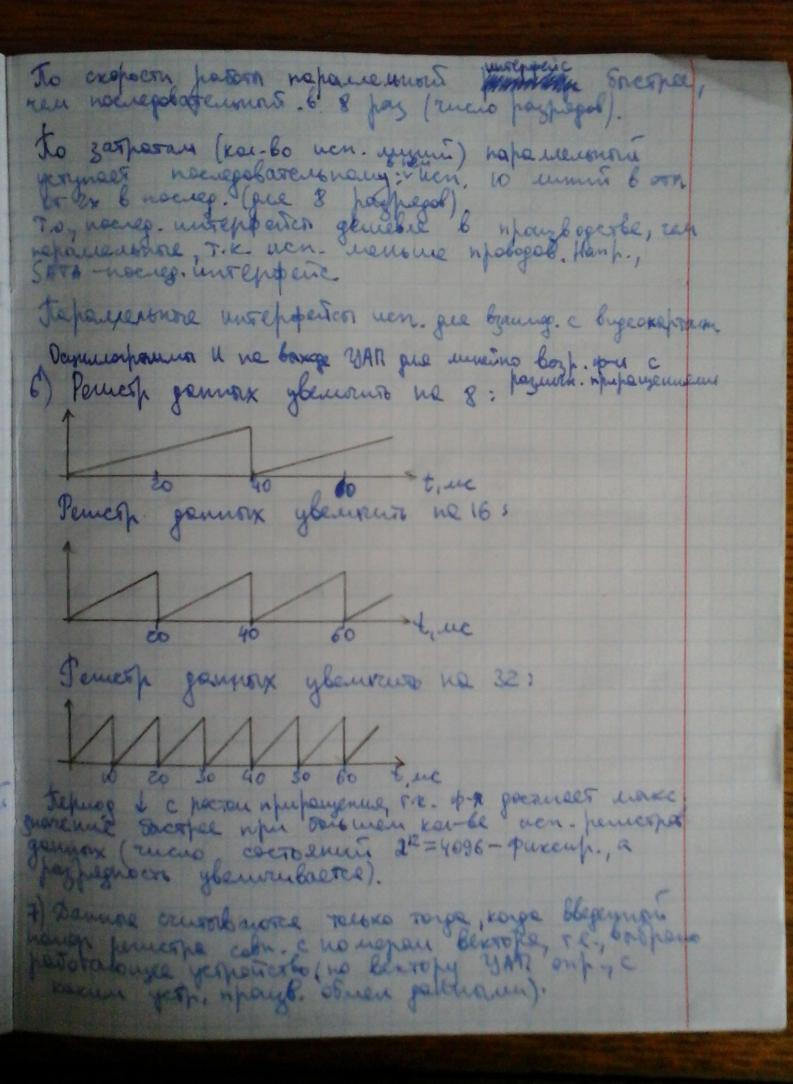 По скорости работы параллельный интерфейс быстрее,
чем последовательный в 8 раз (число разрядов).
По затратам (кол-во исп. линий) параллельный
уступает последовательному: исп. 10 линий в отл.
от 2х в послед. (для 8 разрядов).
Т.о, послед. интерфейсы дешевле в производстве, чем
параллельные, т.к. исп. меньше проводов. Напр.,
SATA - послед. интерфейс.
Параллельные интерфейсы исп. для взаимод. с видеокартами
Осциллограммы U на выходе ЦАП для линейно возр. ф-и с
различн. приращениями
6) Регистр данных увеличить на 8:
20 40 60 t, мс
Регистр данных увеличить на 16:
20 40 60 t, мс
Регистр данных увеличить на 32:
10 20 30 40 50 60 t, мс
Период ↓ с ростом приращения, т.к. ф-я достигает макс.
значение быстрее при большем кол-ве исп. регистров
данных (число состояний 2¹²=4096 - фиксир., а
разрядность увеличивается).
7) Данные считываются только тогда, когда введенный
номер регистра совп. с номером вектора, т.е., выбрано
работающее устройство (по вектору ЦАП опр., с
каким устр. произв. обмен данными).